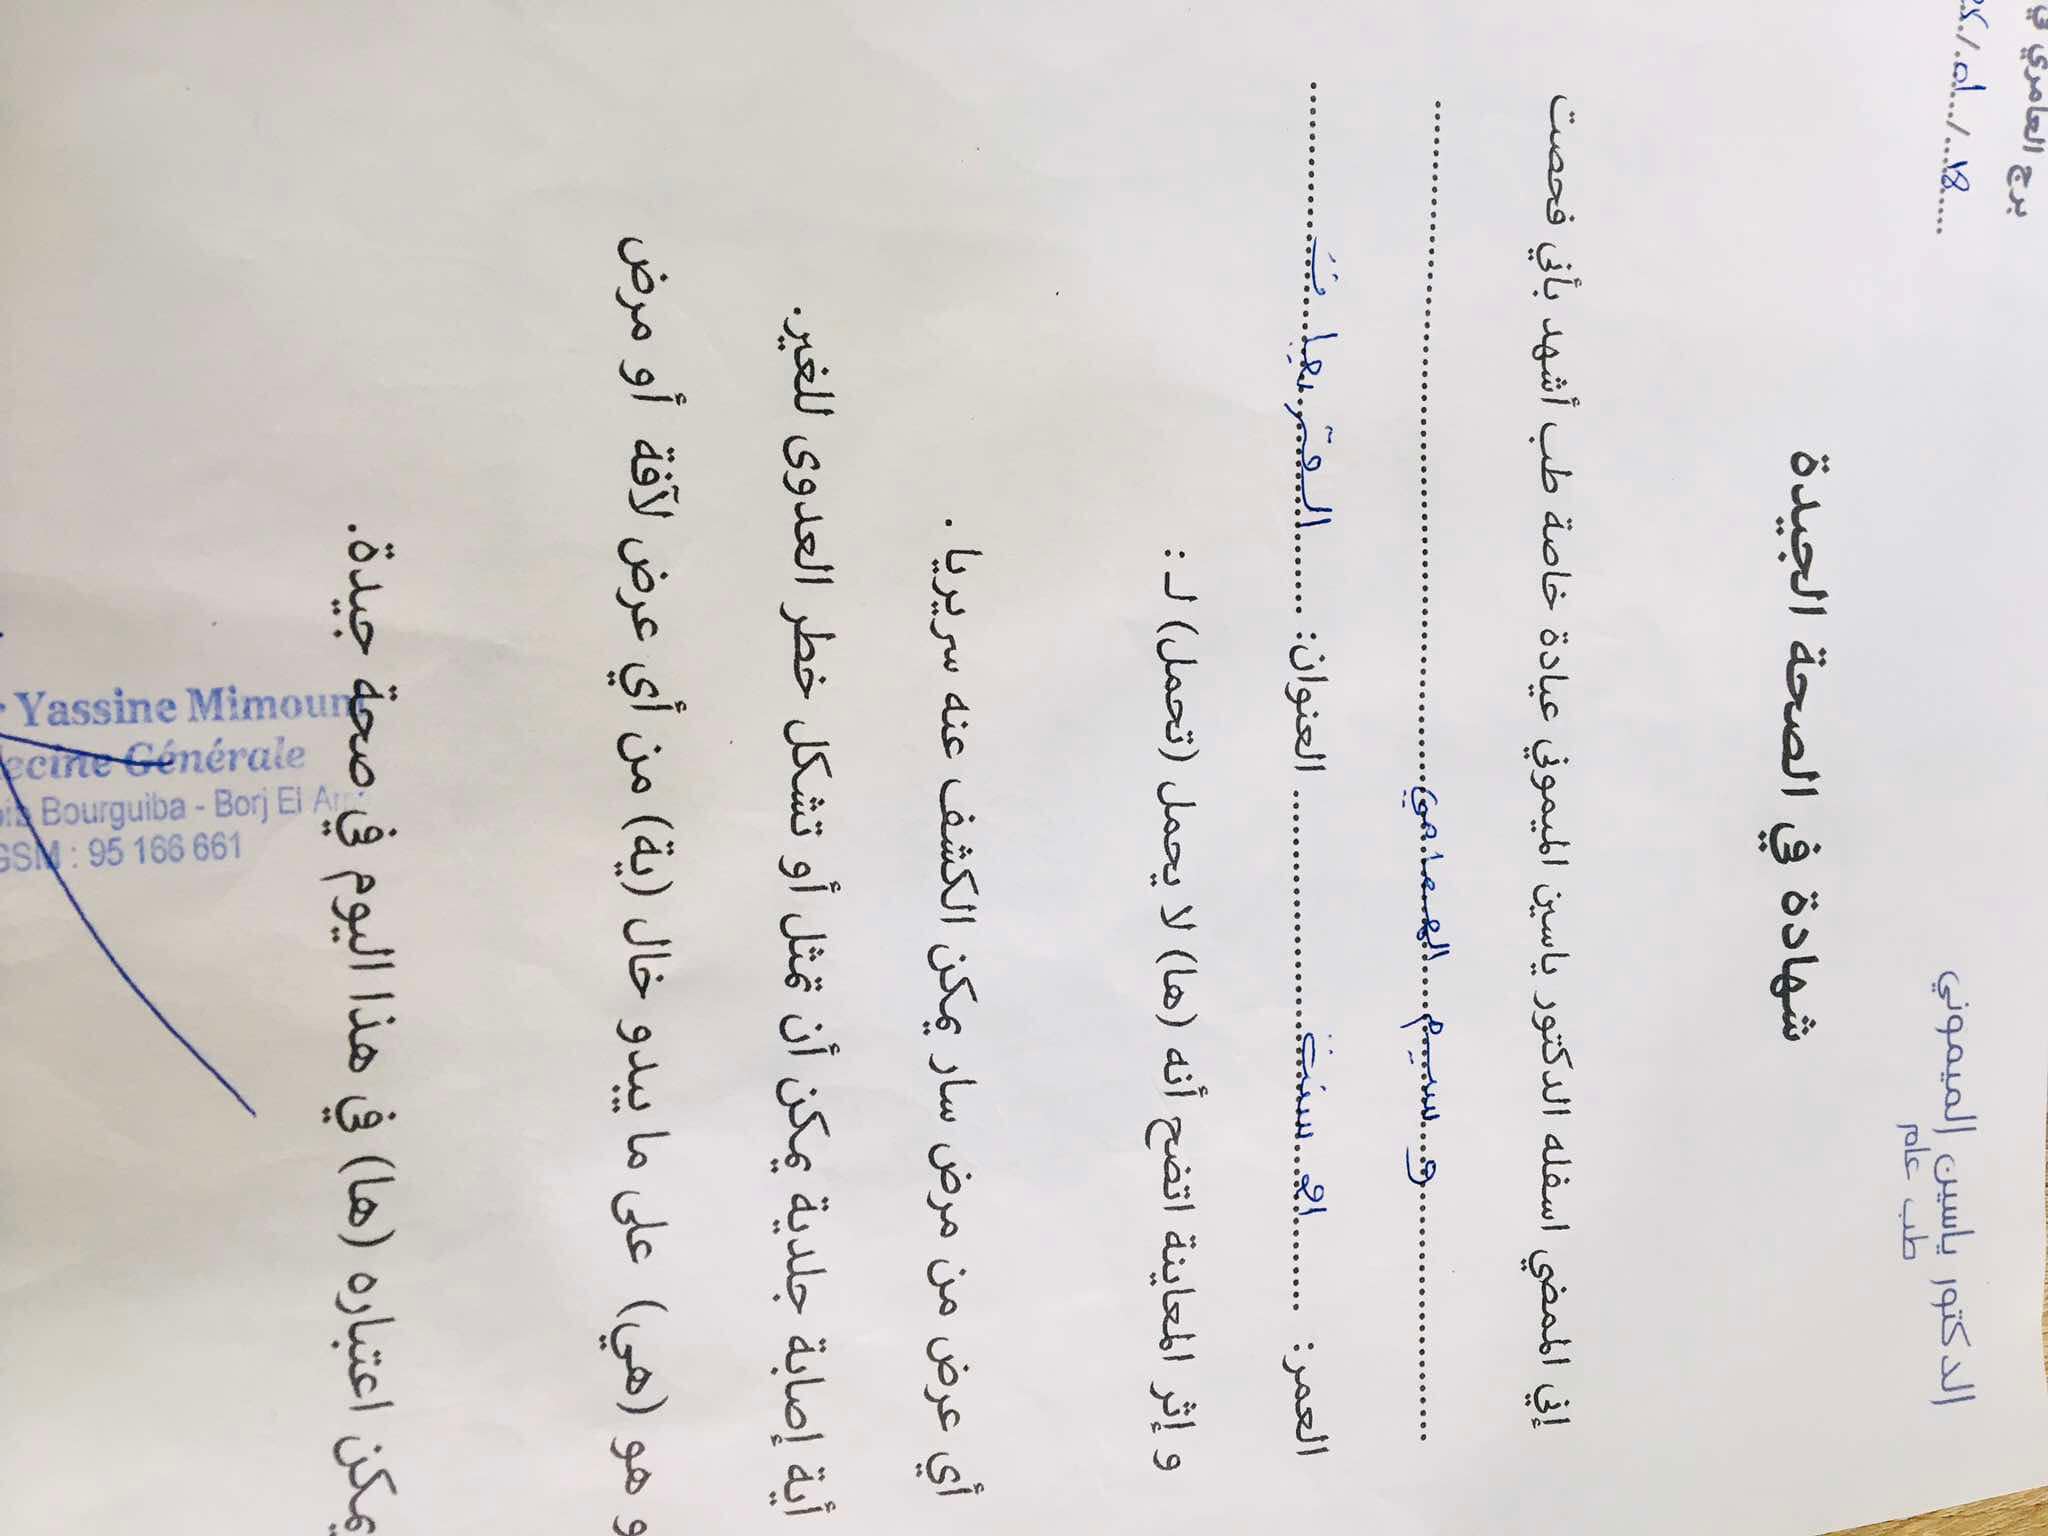 الدكتور ياسين الميموني
طب عام
برج العامري في
شهادة في الصحة الجيدة
إني الممضي اسفله الدكتور ياسين الميموني عيادة خاصة طب أشهد بأني فحصت
وسيم
العمر: العنوان:
و إثر المعاينة اتضح أنه (ها) لا يحمل (تحمل) لـ :
أي عرض من مرض سار يمكن الكشف عنه سريريا .
أية إصابة جلدية يمكن أن تمثل أو تشكل خطر العدوى للغير.
و هو (هي) على ما يبدو خال (ية) من أي عرض لآفة أو مرض
يمكن اعتباره (ها) في هذا اليوم في صحة جيدة.
Yassine Mimouni
Générale
Bourguiba - Borj El
GSM : 95 166 661